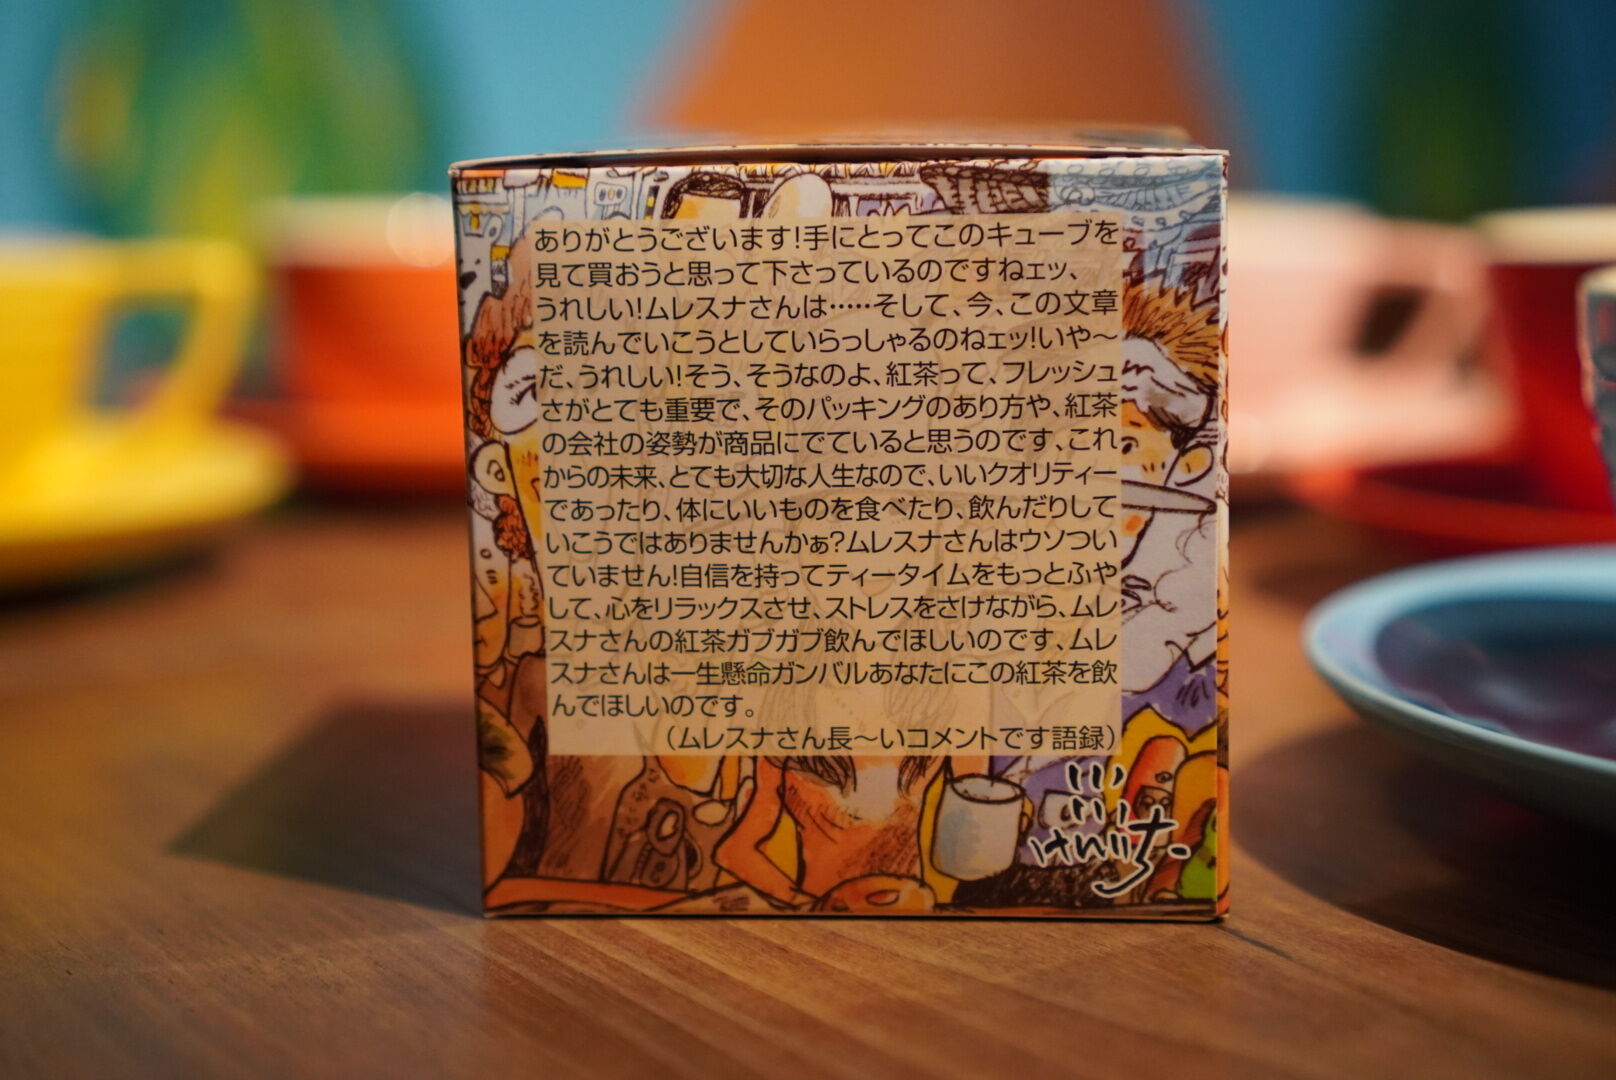 ありがとうございます!手にとってこのキューブを
見て買おうと思って下さっているのですねェッ、
うれしい!ムレスナさんは……そして、今、この文章
を読んでいこうとしていらっしゃるのねェッ!いや〜
だ、うれしい!そう、そうなのよ、紅茶って、フレッシュ
さがとても重要で、そのパッキングのあり方や、紅茶
の会社の姿勢が商品にでていると思うのです、これ
からの未来、とても大切な人生なので、いいクオリティー
であったり、体にいいものを食べたり、飲んだりして
いこうではありませんかぁ?ムレスナさんはウソつい
ていません!自信を持ってティータイムをもっとふや
して、心をリラックスさせ、ストレスをさけながら、ムレ
スナさんの紅茶ガブガブ飲んでほしいのです、ムレ
スナさんは一生懸命ガンバルあなたにこの紅茶を飲
んでほしいのです。
（ムレスナさん長〜いコメントです語録）